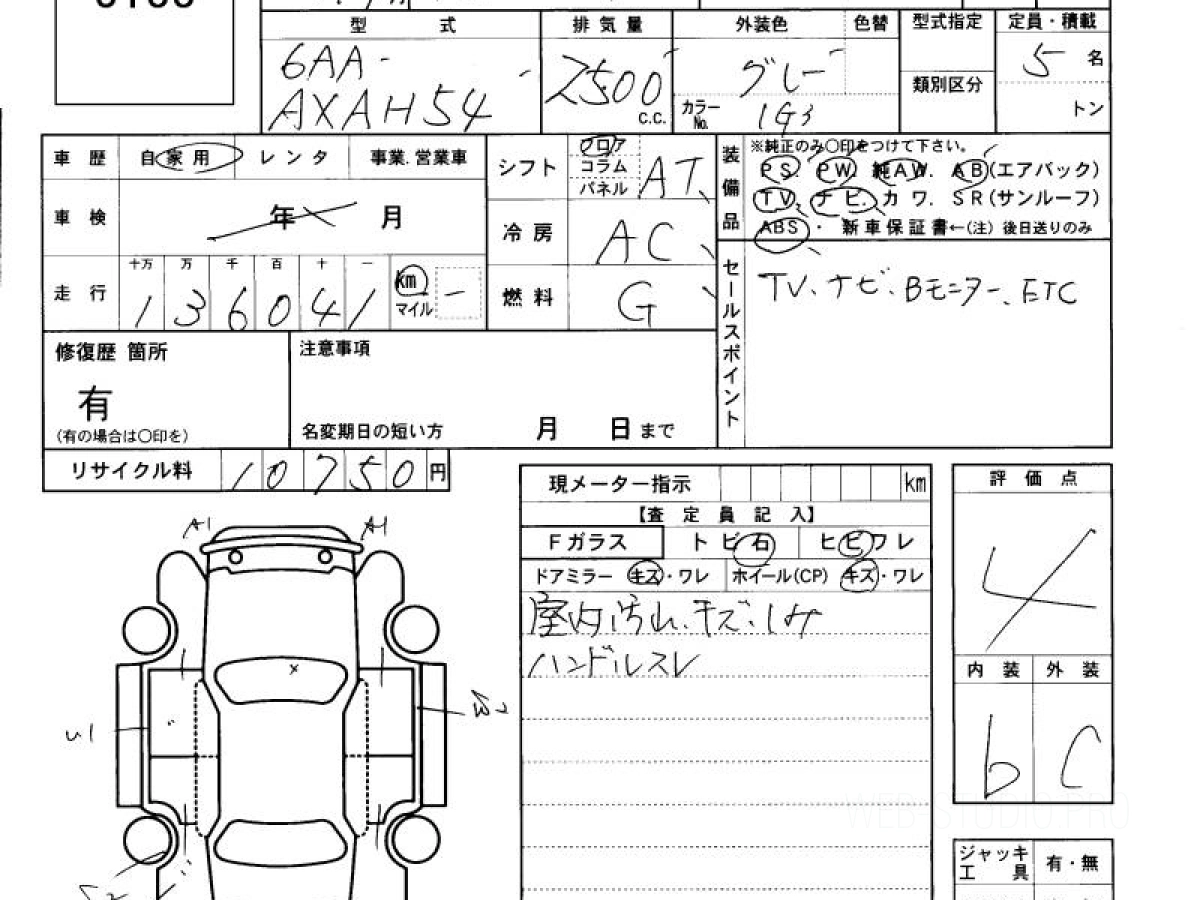 型 式
排 気 量
外装色
色替
型式指定
定員・積載
6AA-
AXAH54
2500
C.C.
グレー
カラーNo.
1G3
類別区分
5 名
トン
車 歴
自家用
レンタ
事業.営業車
シフト
フロア
コラム
パネル
AT
装備品
※純正のみ〇印をつけて下さい。
PS. PW. 純AW. AB(エアバック)
TV. ナビ. カワ. SR(サンルーフ)
ABS・新車保証書←(注) 後日送りのみ
車 検
年 月
冷 房
AC
走 行
十万 万 千 百 十 一
1 3 6 0 4 1
km
マイル
燃 料
G
セールスポイント
TV、ナビ、Bモニター、ETC
修復歴 箇所
有
(有の場合は〇印を)
注意事項
名変期日の短い方 月 日 まで
リサイクル料
1 0 7 5 0 円
現メーター指示 km
【査 定 員 記 入】
Fガラス
ト ビ 石
ヒ ビ ワ レ
ドアミラー キズ・ワレ
ホイール(CP) キズ・ワレ
室内汚れ、キズ、しみ
ハンドルスレ
評 価 点
4
内 装
外 装
b
C
ジャッキ
工 具
有・無
A1
A1
U1
W2
WEB-STUDIO.PRO